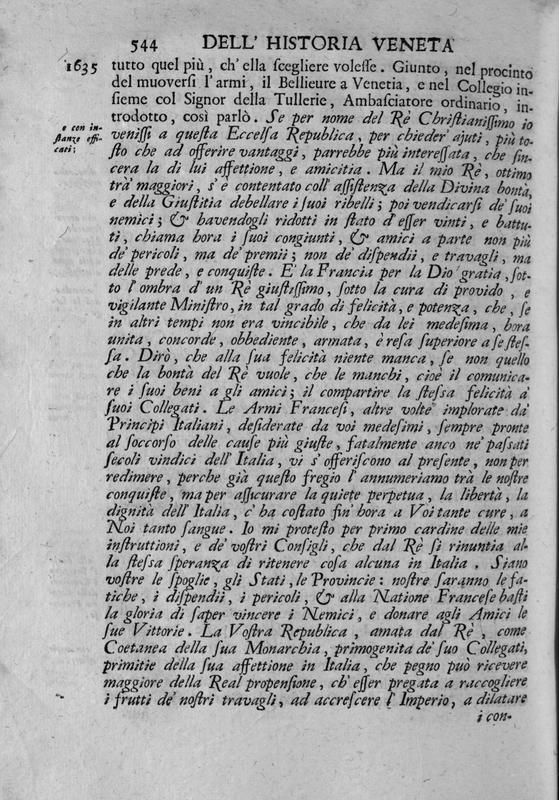 544 DELL' HISTORIA VENETA
1635 tutto quel più, ch' ella ſcegliere voleſſe. Giunto, nel procinto
del muoverſi l'armi, il Bellieure a Venetia, e nel Collegio in-
ſieme col Signor della Tullerie, Ambaſciatore ordinario, in-
trodotto, così parlò. Se per nome del Rè Chriſtianiſſimo io
e con in-
ſtanze effi-
caci;
veniſſi a queſta Eccelſa Republica, per chieder' ajuti, più to-
ſto che ad offerire vantaggi, parrebbe più intereſſata, che ſin-
cera la di lui affettione, e amicitia. Ma il mio Rè, ottimo
trà maggiori, s'è contentato coll' aſſiſtenza della Divina bontà,
e della Giuſtitia debellare i ſuoi ribelli; poi vendicarſi de' ſuoi
nemici; & havendogli ridotti in ſtato d'eſſer vinti, e battu-
ti, chiama hora i ſuoi congiunti, & amici a parte non più
de' pericoli, ma de' premii; non de' diſpendii, e travagli, ma
delle prede, e conquiſte. E' la Francia per la Dio gratia, ſot-
to l'ombra d'un Rè giuſtiſſimo, ſotto la cura di provido, e
vigilante Miniſtro, in tal grado di felicità, e potenza, che, ſe
in altri tempi non era vincibile, che da lei medeſima, hora
unita, concorde, obbediente, armata, è reſa ſuperiore a ſe ſteſ-
ſa. Dirò, che alla ſua felicità niente manca, ſe non quello
che la bontà del Rè vuole, che le manchi, cioè il comunica-
re i ſuoi beni a gli amici; il compartire la ſteſſa felicità a'
ſuoi Collegati. Le Armi Franceſi, altre volte implorate da'
Principi Italiani, deſiderate da voi medeſimi, ſempre pronte
al ſoccorſo delle cauſe più giuſte, fatalmente anco ne' paſſati
ſecoli vindici dell' Italia, vi s'offeriſcono al preſente, non per
redimere, perche già queſto fregio l'annumeriamo trà le noſtre
conquiſte, ma per aſſicurare la quiete perpetua, la libertà, la
dignità dell' Italia, c' ha coſtato fin' hora a Voi tante cure, a
Noi tanto ſangue. Io mi proteſto per primo cardine delle mie
inſtruttioni, e de' voſtri Conſigli, che dal Rè ſi rinuntia al-
la ſteſſa ſperanza di ritenere coſa alcuna in Italia. Siano
voſtre le ſpoglie, gli Stati, le Provincie: noſtre ſaranno le fa-
tiche, i diſpendii, i pericoli, & alla Natione Franceſe baſti
la gloria di ſaper vincere i Nemici, e donare agli Amici le
ſue Vittorie. La Voſtra Republica, amata dal Rè, come
Coetanea della ſua Monarchia, primogenita de' ſuo Collegati,
primitie della ſua affettione in Italia, che pegno può ricevere
maggiore della Real propenſione, ch' eſſer pregata a raccogliere
i frutti de' noſtri travagli, ad accreſcere l'Imperio, a dilatare
i con-